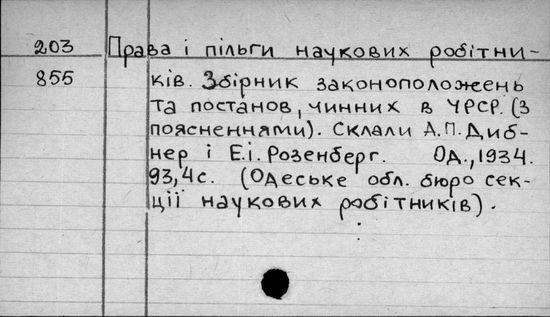 203 Права і пільги наукових робітни-
855 ків. Збірник законоположень
та постанов, чинних в УРСР. (З
поясненнями). Склали А.П.Диб-
нер і Е.І. Розенберг. Од., 1934.
93,4с. (Одеське обл. бюро сек-
ції наукових робітників).